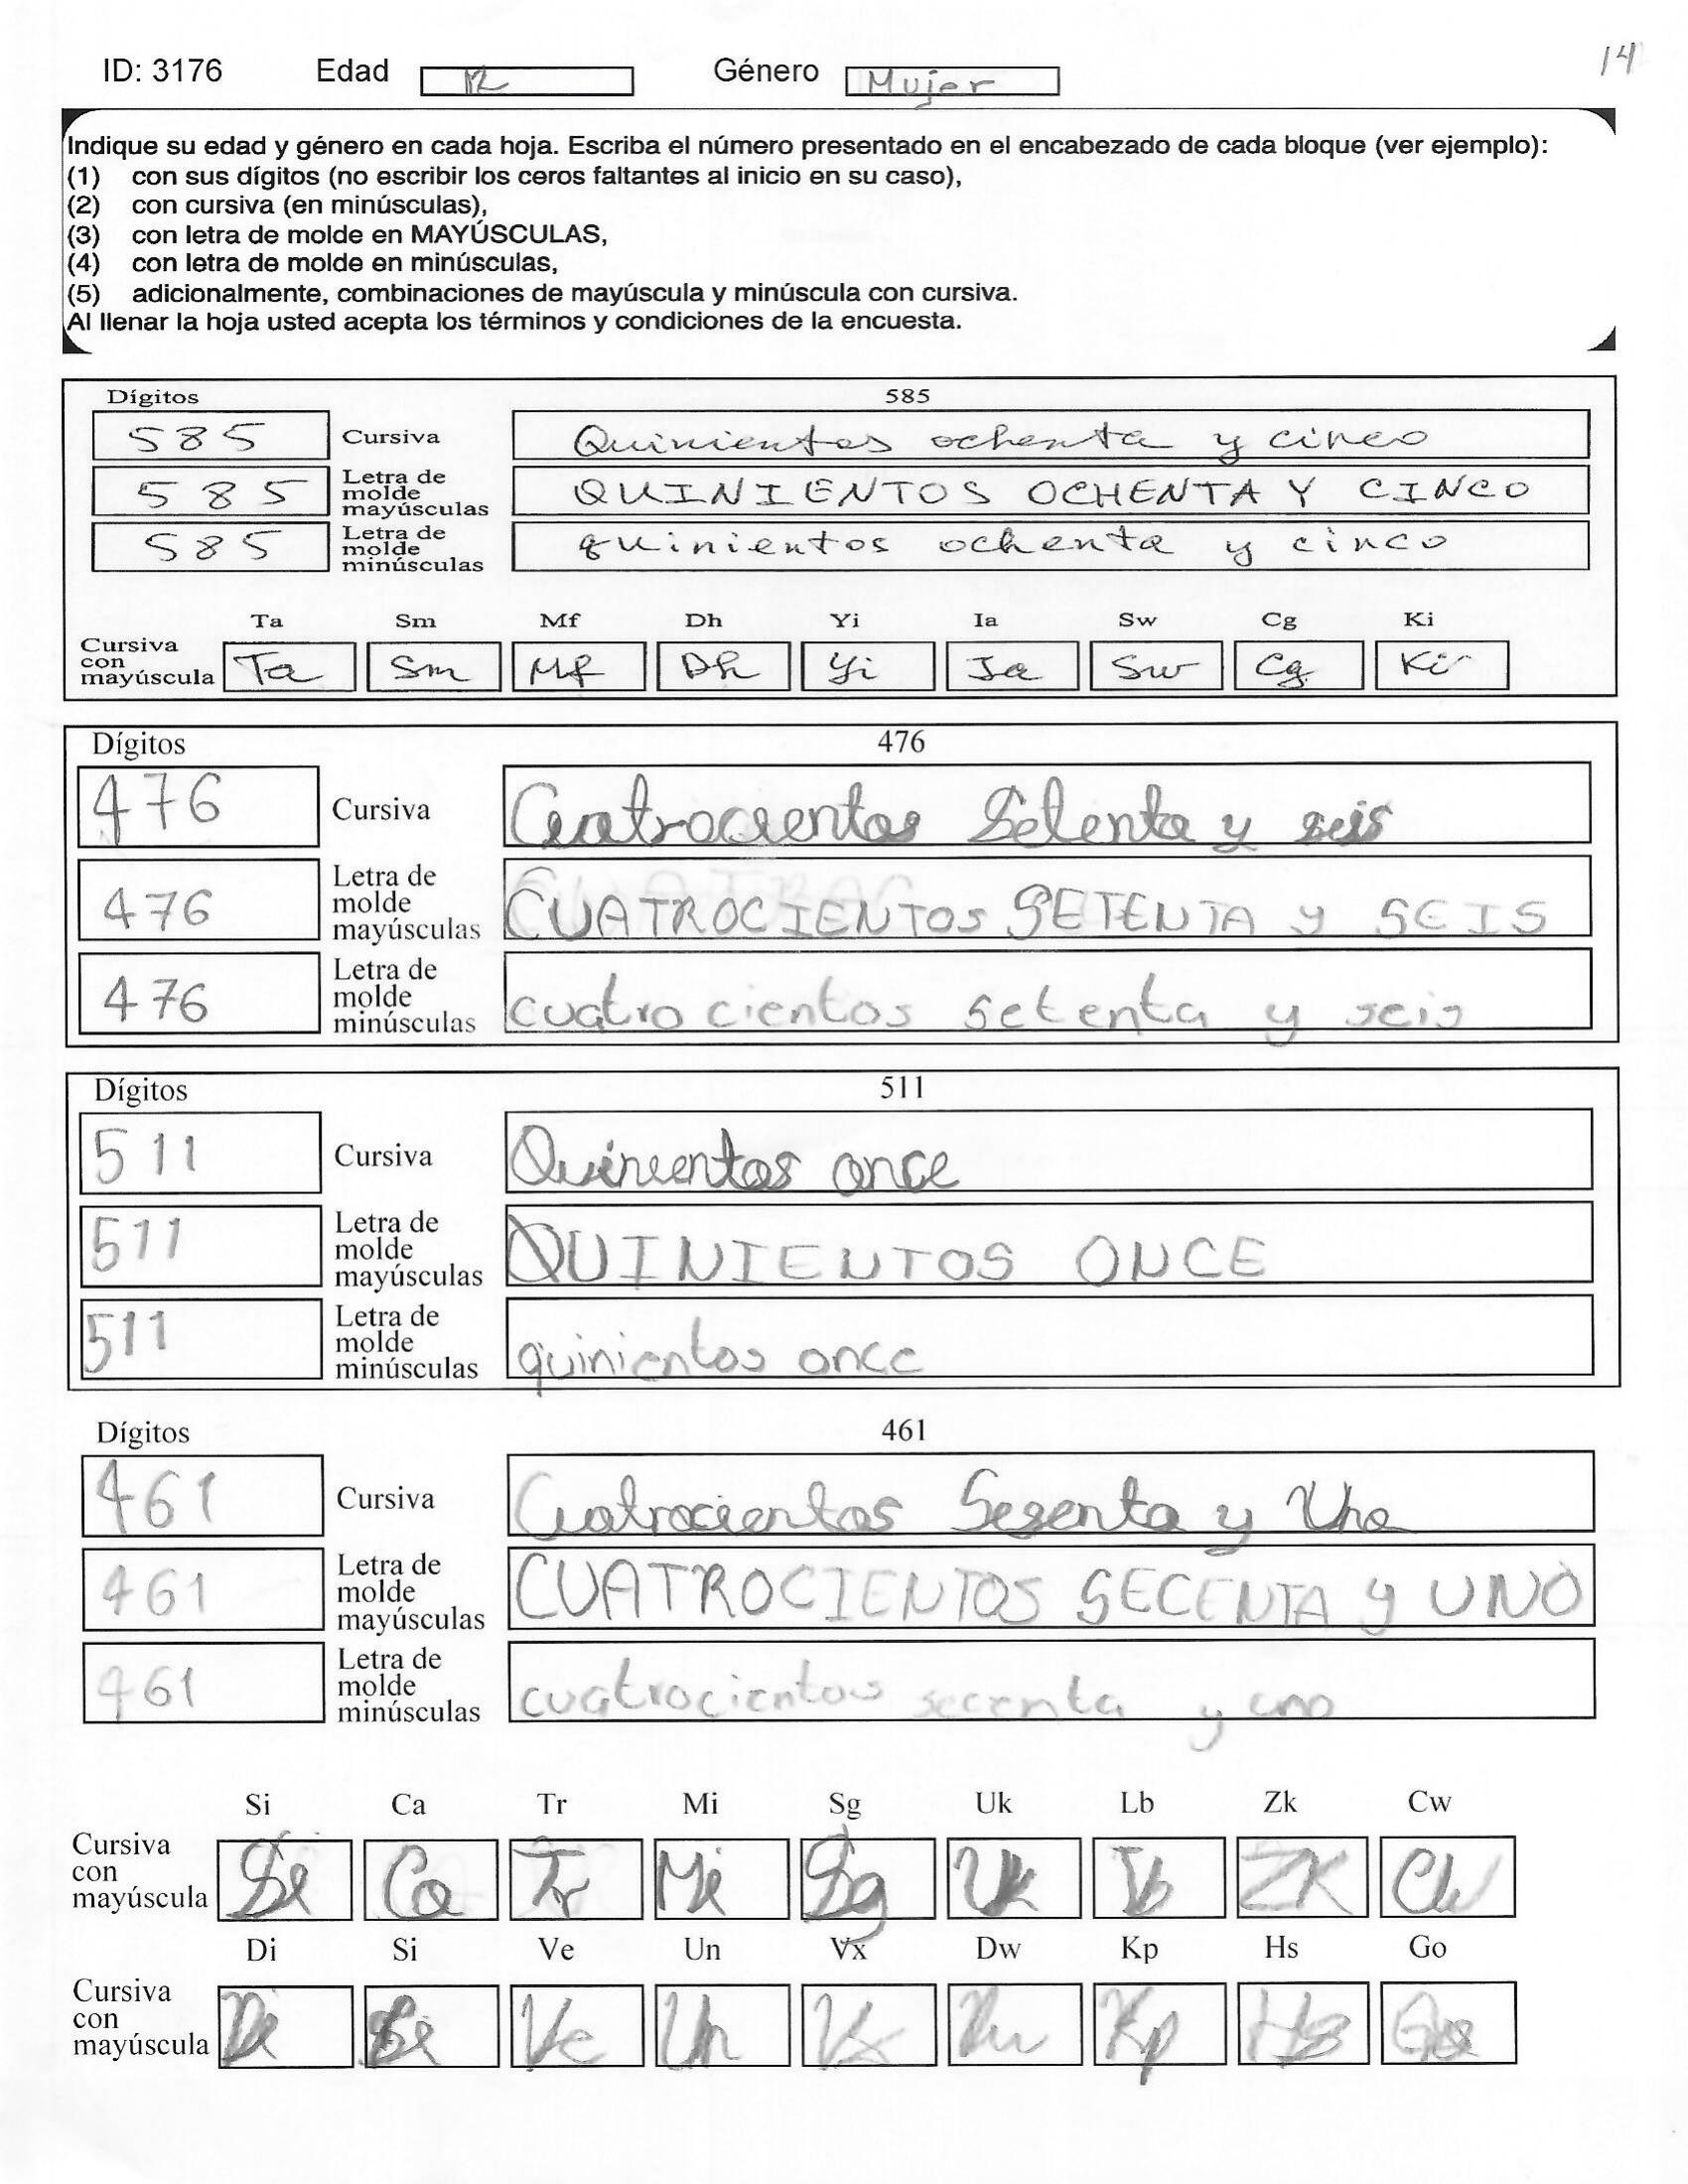 ID: 3176 Edad 12 Género Mujer 14
Indique su edad y género en cada hoja. Escriba el número presentado en el encabezado de cada bloque (ver ejemplo):
(1) con sus dígitos (no escribir los ceros faltantes al inicio en su caso),
(2) con cursiva (en minúsculas),
(3) con letra de molde en MAYÚSCULAS,
(4) con letra de molde en minúsculas,
(5) adicionalmente, combinaciones de mayúscula y minúscula con cursiva.
Al llenar la hoja usted acepta los términos y condiciones de la encuesta.
Dígitos 585
585 Cursiva Quinientos ochenta y cinco
585 Letra de molde mayúsculas QUINIENTOS OCHENTA Y CINCO
585 Letra de molde minúsculas quinientos ochenta y cinco
Ta Sm Mf Dh Yi Ia Sw Cg Ki
Cursiva con mayúscula Ta Sm Mf Dh Yi Ia Sw Cg Ki
Dígitos 476
476 Cursiva Cuatrocientos Setenta y seis
476 Letra de molde mayúsculas CUATROCIENTOS SETENTA y SEIS
476 Letra de molde minúsculas cuatro cientos setenta y seis
Dígitos 511
511 Cursiva Quinientos once
511 Letra de molde mayúsculas QUINIENTOS ONCE
511 Letra de molde minúsculas quinientos once
Dígitos 461
461 Cursiva Cuatrocientos Sesenta y Uno
461 Letra de molde mayúsculas CUATROCIENTOS SECENTA y UNO
461 Letra de molde minúsculas cuatrocientos secenta y uno
Si Ca Tr Mi Sg Uk Lb Zk Cw
Cursiva con mayúscula Si Ca Tr Mi Sg Uk Lb ZK Cw
Di Si Ve Un Vx Dw Kp Hs Go
Cursiva con mayúscula Di Si Ve Un Vx Dw Kp Hs Go